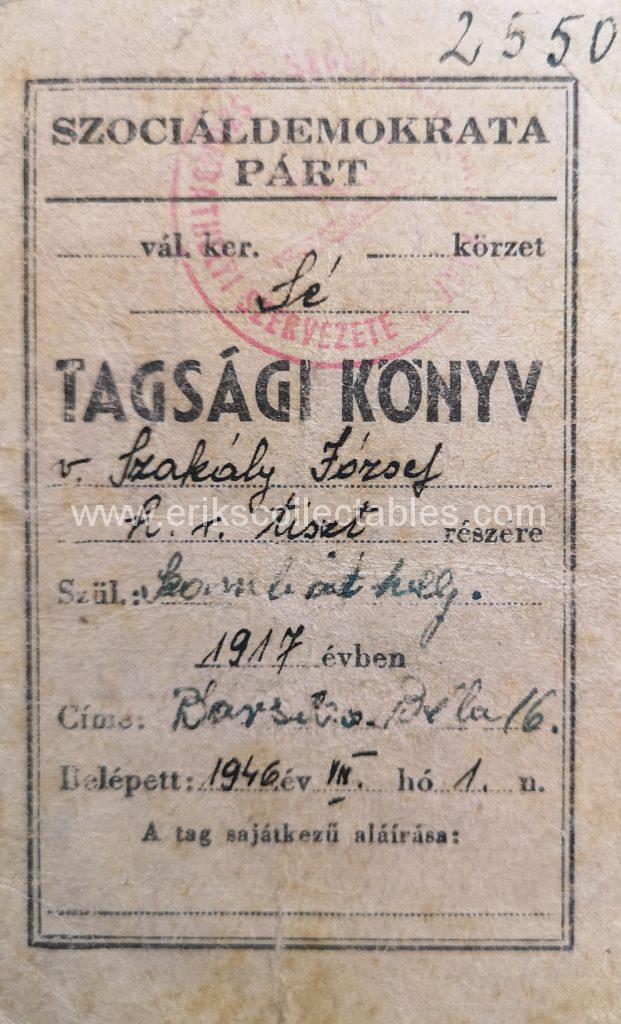 2550
SZOCIÁLDEMOKRATA
PÁRT
vál. ker. körzet
Sé
SZERVEZETE
TAGSÁGI KÖNYV
v. Szakály József
www.erikscollectables.com
h. t. tiszt részére
Szül.: Szombathely.
1917 évben
Címe: Béla 16.
Belépett: 1946 év VII. hó 1. n.
A tag sajátkezű aláírása: